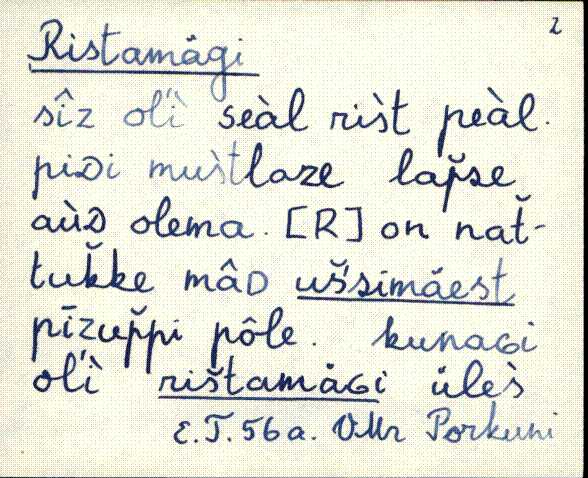 2
Ristamägi
sîz ol'ì seàl rist̀ peàl.
piᴅi mus̀tlaze lap̆se
aùᴅ olema. [R] on nat̆-
tuk̆ke mâᴅ uš́simäest
pīzup̆pi pôle. kunaɢi
ol'ì ris̆tamäɢi üles̀
E.T.56a. VMr Porkuni